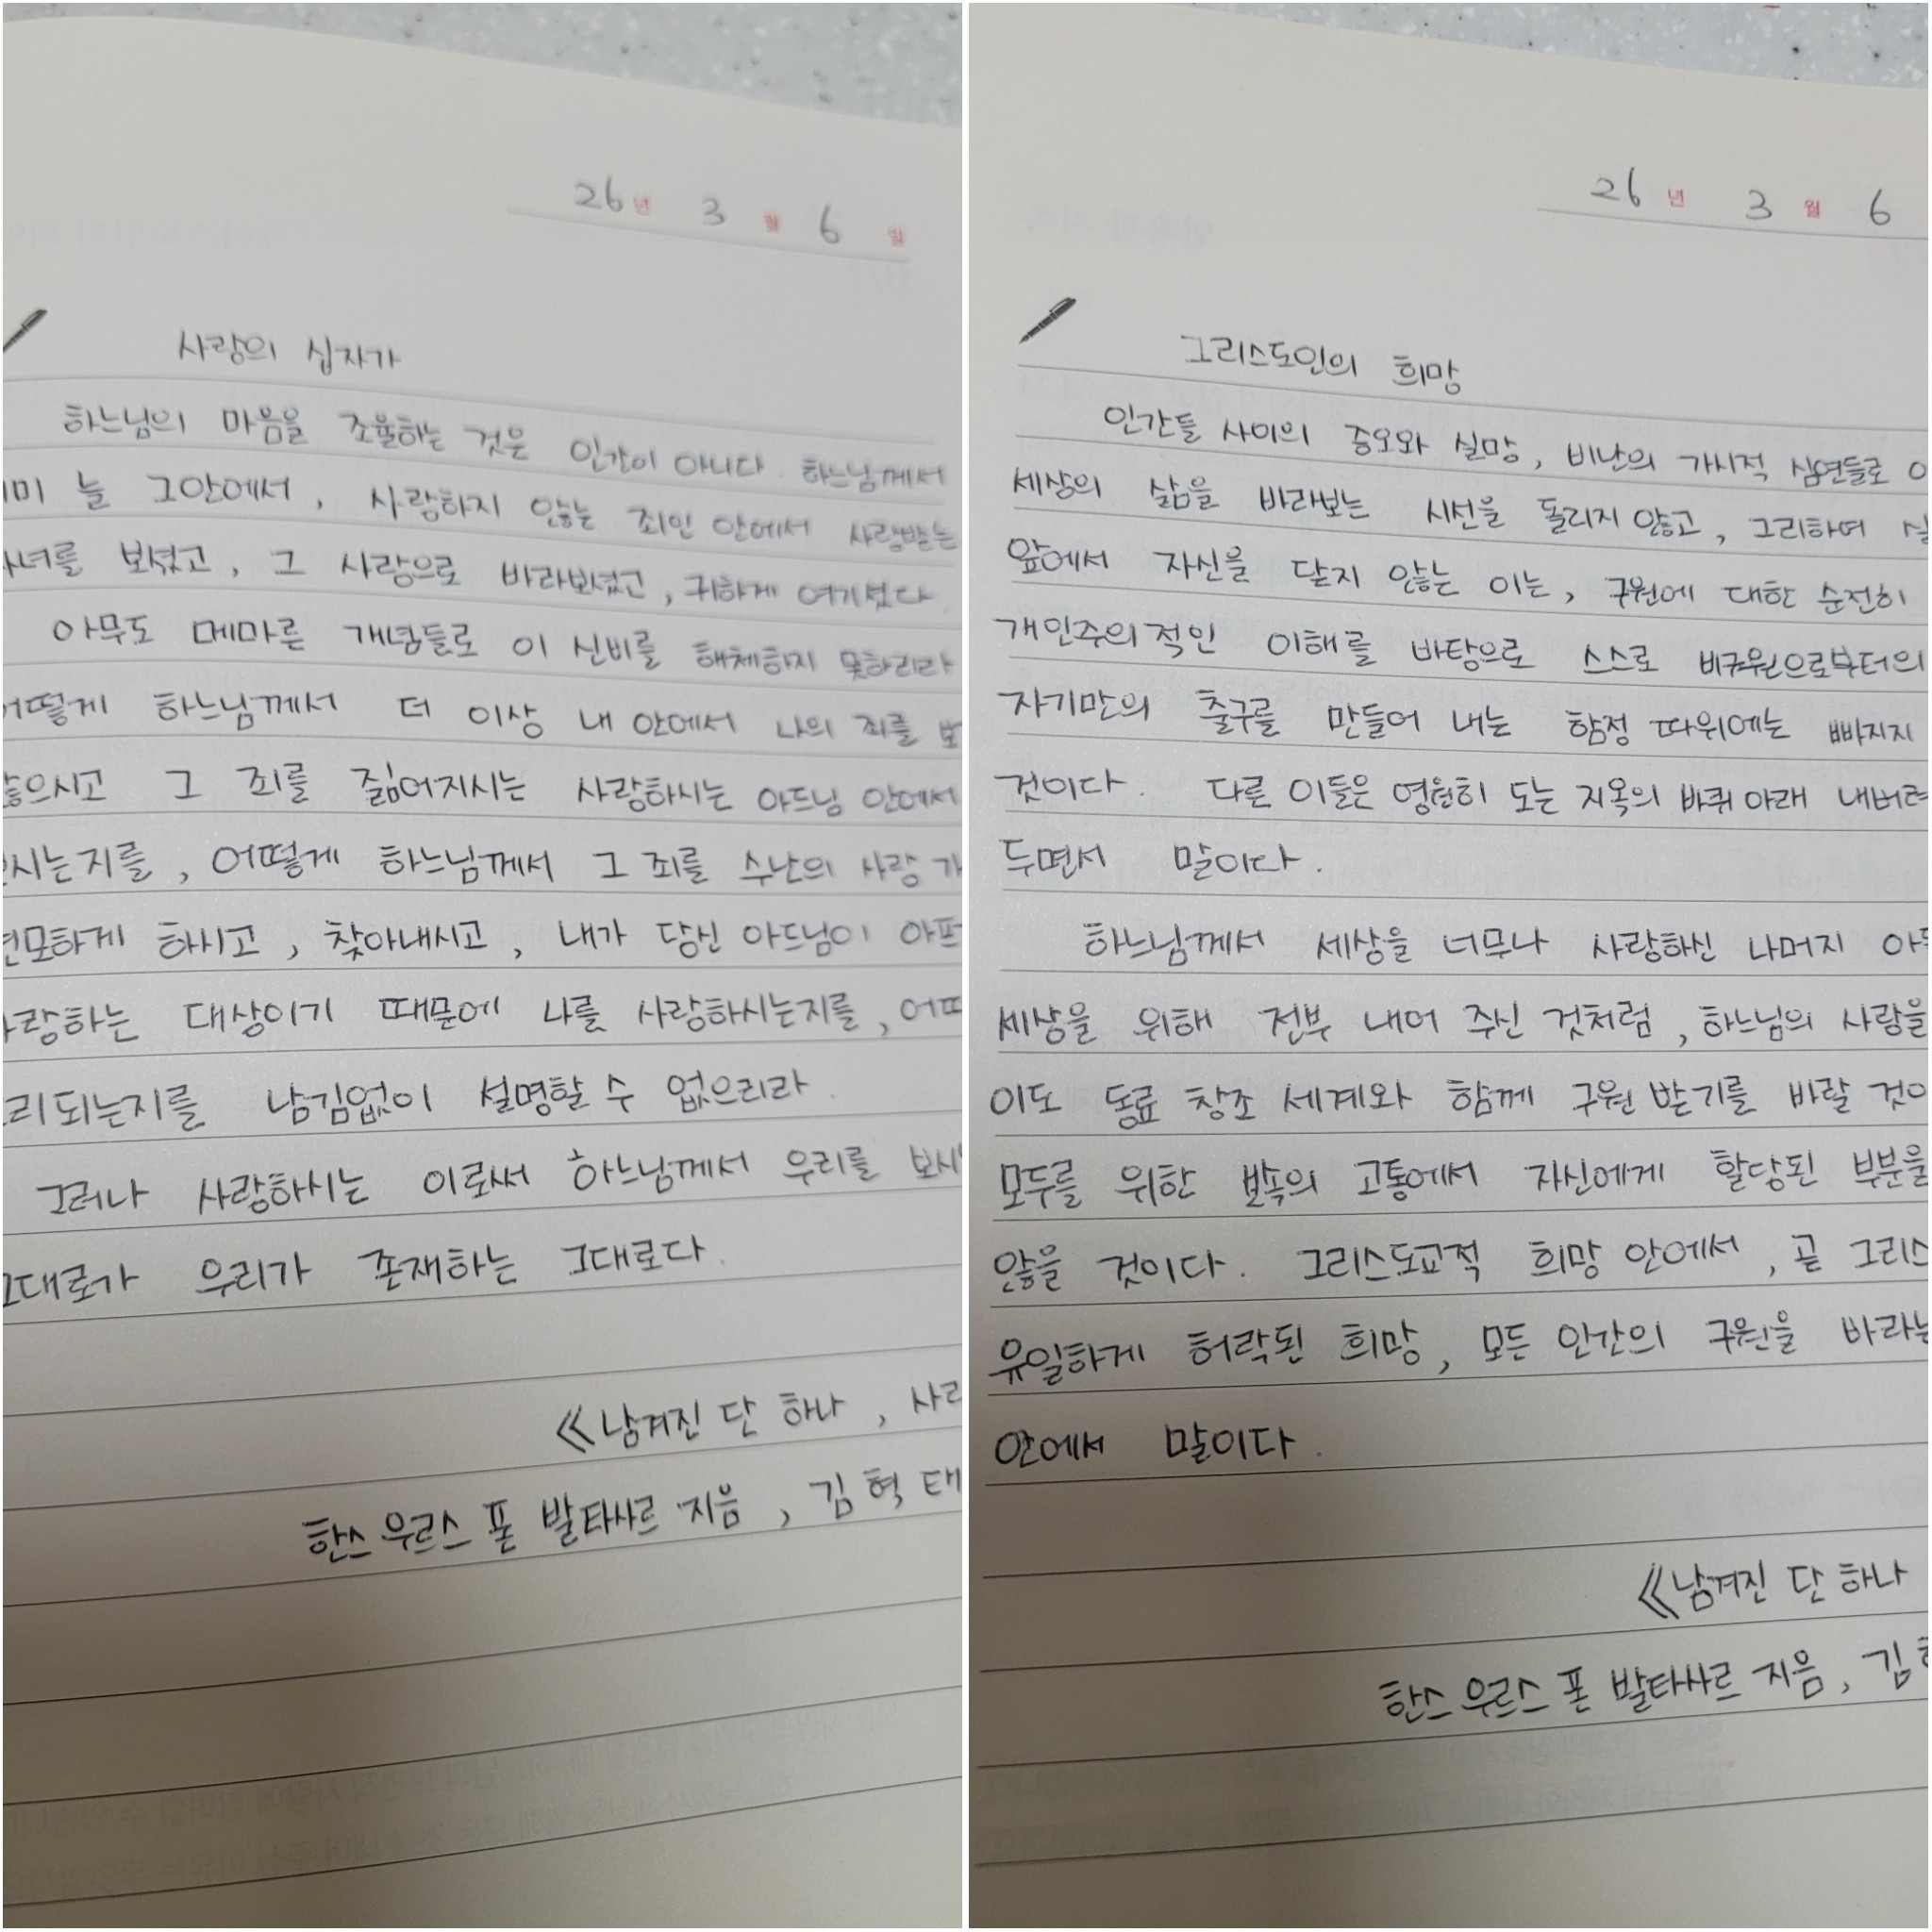 26년 3월 6일
사랑의 십자가
하느님의 마음을 조율하는 것은 인간이 아니다. 하느님께서
늘 그안에서, 사랑하지 않는 죄인 안에서 사랑받는
보셨고, 그 사랑으로 바라보셨고, 귀하게 여기셨다
아무도 메마른 개념들로 이 신비를 해체하지 못하리라
하느님께서 더 이상 내 안에서 나의 죄를
그 죄를 짊어지시는 사랑하시는 아드님 안에서
어떻게 하느님께서 그 죄를 수난의 사랑
하시고, 찾아내시고, 내가 당신 아드님이
대상이기 때문에 나를 사랑하시는지를,
남김없이 설명할 수 없으리라.
그러나 사랑하시는 이로써 하느님께서 우리를
우리가 존재하는 그대로다.
≪남겨진 단 하나,
한스 우르스 폰 발타사르 지음, 김혁태
26년 3월 6
그리스도인의 희망
인간들 사이의 증오와 실망, 비난의 가시적 심연들로
세상의 삶을 바라보는 시선을 돌리지 않고, 그리하여
앞에서 자신을 닫지 않는 이는, 구원에 대한 순전히
개인주의적인 이해를 바탕으로 스스로 비구원으로부터의
자기만의 출구를 만들어 내는 함정 따위에는 빠지지
것이다. 다른 이들은 영원히 도는 지옥의 바퀴 아래
두면서 말이다.
하느님께서 세상을 너무나 사랑하신 나머지
세상을 위해 전부 내어 주신 것처럼, 하느님의 사랑을
이도 동료 창조 세계와 함께 구원 받기를 바랄
모두를 위한 보속의 고통에서 자신에게 할당된 부분을
않을 것이다. 그리스도교적 희망 안에서, 곧
유일하게 허락된 희망, 모든 인간의 구원을
안에서 말이다.
≪남겨진 단 하나
한스 우르스 폰 발타사르 지음, 김